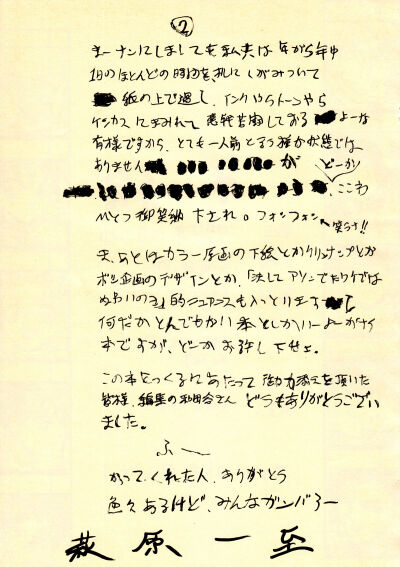 ②
まーナンにしましても私奏は年がら年中
1日のほとんどの時間を机にしがみついて
紙の上で過し、インクやらトーンやら
ケシカスにまみれて悪戦苦闘しておるよーな
有様ですから、とても一人前とるう確か状態では
ありません が どーか
、ここわ
ひとつ御笑納下され。フォンフォン ←笑らう!!
えーあとはカラー原画の下絵とかクリンナップとか
ボツ企画のデザインとか、「決してアソンでたワケでは
ぬぁいのよ」的ニュアンスも入っとります
何だかとんでもない本としかいーよーがナイ
本ですが、どーかお許し下せぇ。
この本をつくるにあたって御力添えを頂いた
皆様、編集の和田谷さん どうもありがとうござい
ました。
ふー
かってくれた人、ありがとう
色々あるけど、みんなガンバろー
萩原一至